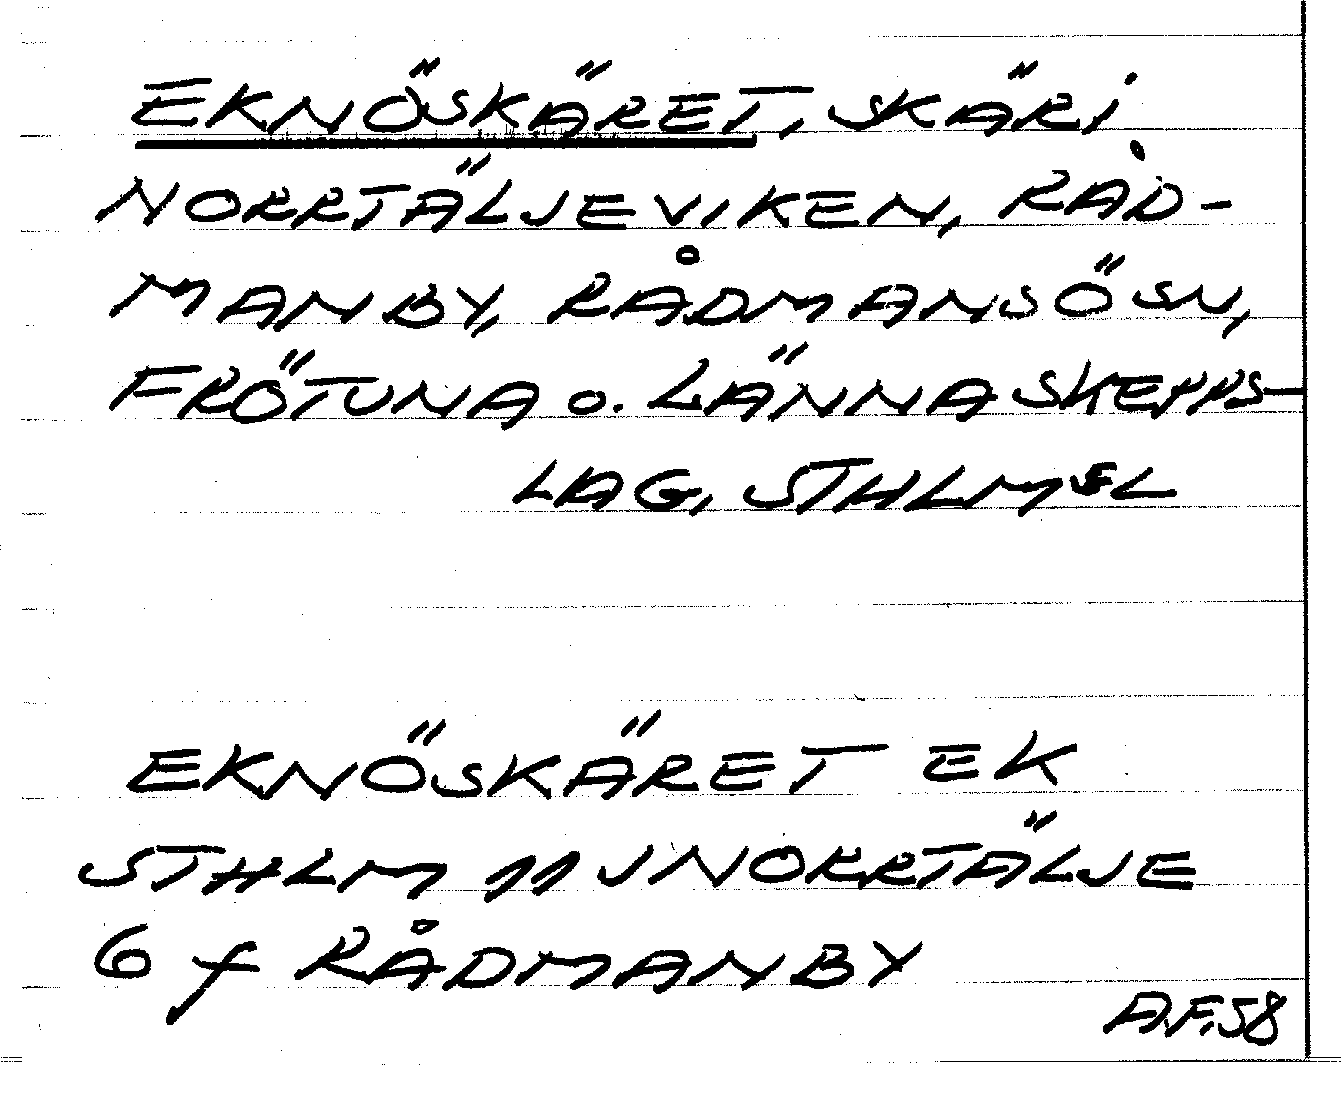 EKNÖSKÄRET, SKÄR I
NORRTÄLJEVIKEN, RÅD-
MANBY, RÅDMANSÖ SN,
FRÖTUNA O. LÄNNA SKEPPS-
LAG, STHLMS L
EKNÖSKÄRET EK
STHLM 11 J NORRTÄLJE
6 f RÅDMANBY
A.F. 58